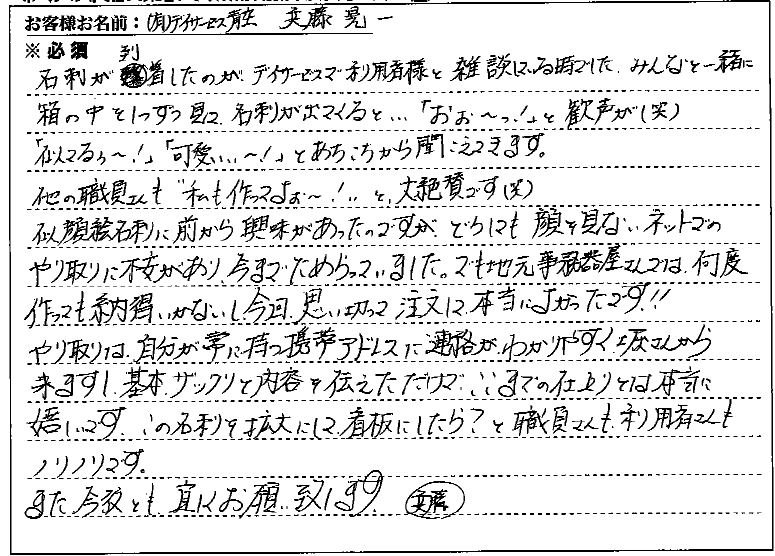 お客様お名前：(有)デイサービス 斉藤 晃一
※必須 到
名刺が着したのが、デイサービスで利用者様と雑談している時でした。みんなと一緒に
箱の中を1つずつ見て、名刺が出てくると…「おぉ〜っ！」と歓声が(笑)
「似てるぅ〜！」「可愛いぃ〜！」とあちこちから聞こえてきます。
他の職員さんも“私も作ってよぉ〜！”と、大絶賛です(笑)
似顔絵名刺に前から興味があったのですが、どうしても顔を見ないネットでの
やり取りに不安があり、今までためらっていました。でも地元事務器屋さんでは、何度
作っても納得いかないし今回、思い切って注文して、本当によかったです!!
やり取りは、自分が常に持つ携帯アドレスに連絡が、わかりやすく堀さんから
来ますし、基本ザックリと内容を伝えただけで、ここまでの仕上りとは本当に
嬉しいです。この名刺を拡大にして、看板にしたら？と職員さんも、利用者さんも
ノリノリです。
また今夜とも、宜しくお願い致します。